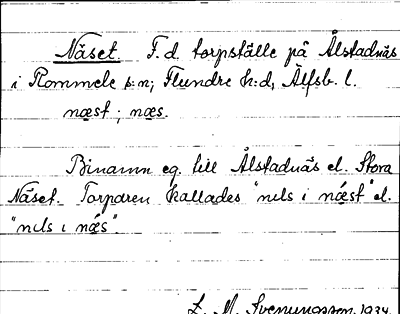 Näset. F.d. torpställe på Ålstadnäs
i Rommele s:n; Flundre h:d, Älfsb. l.
næst ; næs.
Binamn eg. till Ålstadnäs el. Stora
Näset. Torparen kallades "nıls i næ̂st" el.
"nıls ı næ̂s".
L. M. Svenungsson 1934.